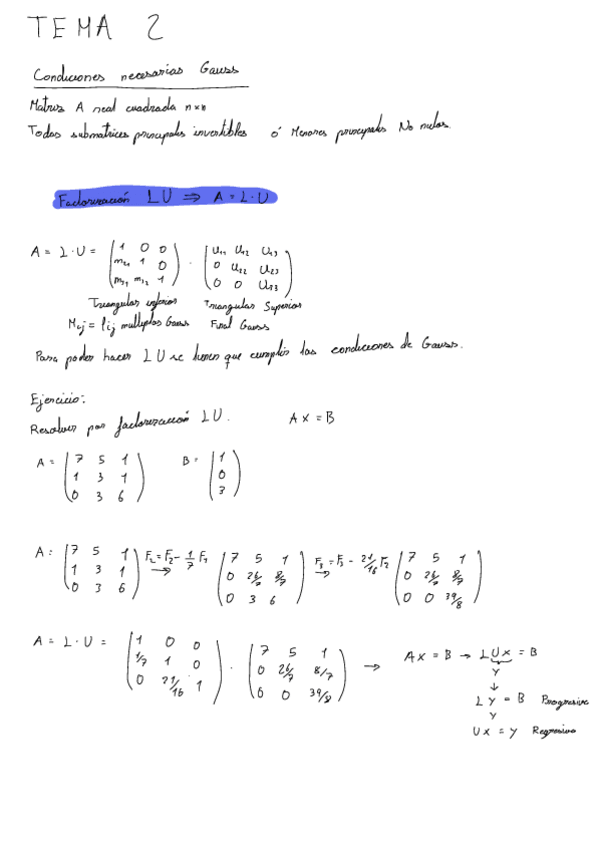 TEMA 2
Condiciones necesarias Gauss
Matriz A real cuadrada n×n
Todas submatrices principales invertibles ó Menores principales No nulos.
Factorización LU ⇒ A = L·U
A = L·U = (1 0 0; m21 1 0; m31 m32 1) · (U11 U12 U13; 0 U22 U23; 0 0 U33)
Triangular inferior Triangular Superior
Mij = lij multiplos Gauss Final Gauss
Para poder hacer LU se tienen que cumplir las condiciones de Gauss.
Ejercicio:
Resolver por factorización LU. Ax = B
A = (7 5 1; 1 3 1; 0 3 6) B = (1; 0; 3)
A: (7 5 1; 1 3 1; 0 3 6) F2 = F2 - 1/7 F1 → (7 5 1; 0 26/7 8/7; 0 3 6) F3 = F3 - 21/16 F2 → (7 5 1; 0 26/7 8/7; 0 0 39/8)
A = L·U = (1 0 0; 1/7 1 0; 0 21/16 1) · (7 5 1; 0 26/7 8/7; 0 0 39/8) → Ax = B → LUx = B
y
↓
Ly = B Progresiva
y
Ux = y Regresiva